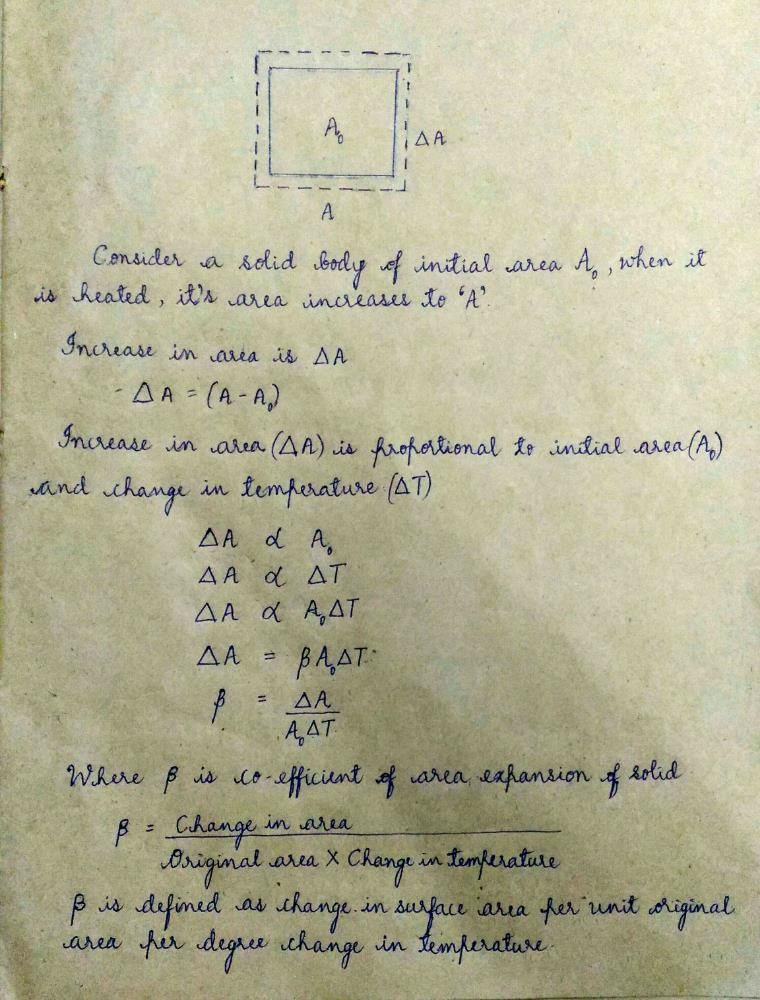 A₀
ΔA
A
Consider a solid body of initial area A₀, when it
is heated, it's area increases to 'A'.
Increase in area is ΔA
ΔA = (A - A₀)
Increase in area (ΔA) is proportional to initial area (A₀)
and change in temperature (ΔT)
ΔA ∝ A₀
ΔA ∝ ΔT
ΔA ∝ A₀ΔT
ΔA = βA₀ΔT
β = ΔA
A₀ΔT
Where β is co-efficient of area expansion of solid
β = Change in area
Original area X Change in temperature
β is defined as change in surface area per unit original
area per degree change in temperature.